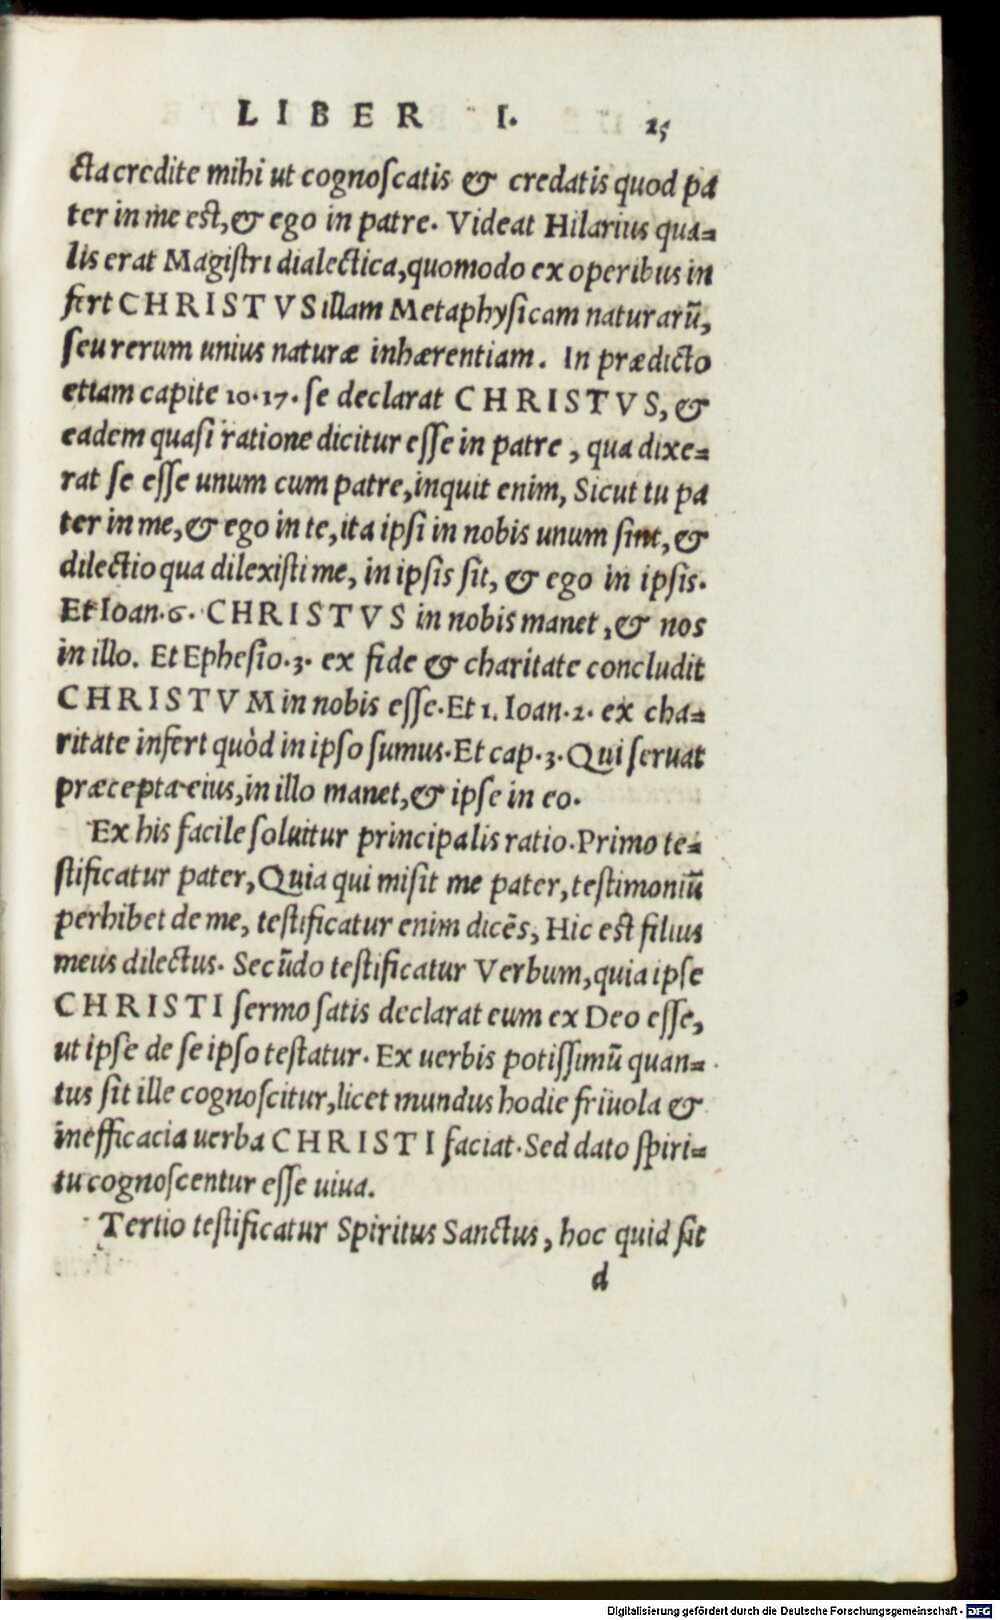 LIBER I. 25
cta credite mihi ut cognoscatis & credatis quod pa
ter in me est, & ego in patre. Videat Hilarius qua=
lis erat Magistri dialectica, quomodo ex operibus in
fert CHRISTVS illam Metaphysicam naturarū,
seu rerum unius naturæ inhærentiam. In prædicto
etiam capite 10.17. se declarat CHRISTVS, &
eadem quasi ratione dicitur esse in patre, qua dixe=
rat se esse unum cum patre, inquit enim, Sicut tu pa
ter in me, & ego in te, ita ipsi in nobis unum sint, &
dilectio qua dilexisti me, in ipsis sit, & ego in ipsis.
Et Ioan.6. CHRISTVS in nobis manet, & nos
in illo. Et Ephesio.3. ex fide & charitate concludit
CHRISTVM in nobis esse. Et 1. Ioan.2. ex cha=
ritate infert quòd in ipso sumus. Et cap.3. Qui seruat
præcepta eius, in illo manet, & ipse in eo.
Ex his facile soluitur principalis ratio. Primo te=
stificatur pater, Quia qui misit me pater, testimoniū
perhibet de me, testificatur enim dicēs, Hic est filius
meus dilectus. Secūdo testificatur Verbum, quia ipse
CHRISTI sermo satis declarat eum ex Deo esse,
ut ipse de se ipso testatur. Ex uerbis potissimū quan=
tus sit ille cognoscitur, licet mundus hodie friuola &
inefficacia uerba CHRISTI faciat. Sed dato spiri=
tu cognoscentur esse uiua.
Tertio testificatur Spiritus Sanctus, hoc quid sit
d
Digitalisierung gefördert durch die Deutsche Forschungsgemeinschaft - DFG